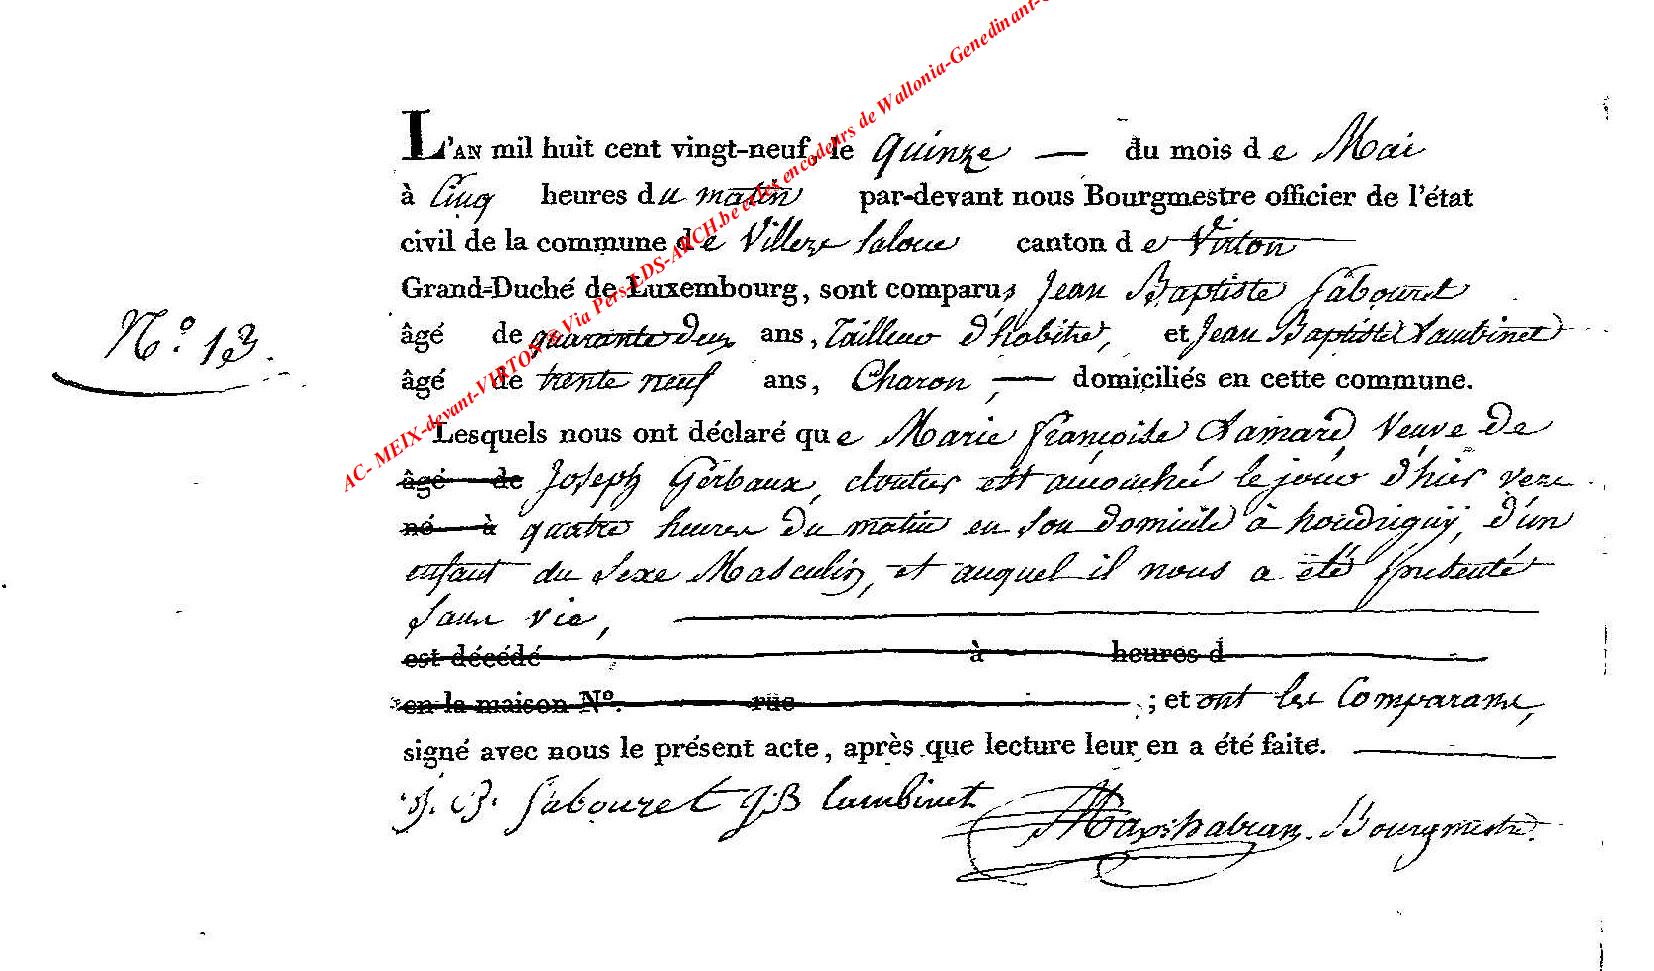 AC- MEIX-devant-VIRTON & Via Pers-LDS-ARCH.be et les encodeurs de Wallonia-Genedinant-
L'AN mil huit cent vingt-neuf, le quinze — du mois de Mai
à Cinq heures du matin par-devant nous Bourgmestre officier de l'état
civil de la commune de Villers laloue canton de Virton
Grand-Duché de Luxembourg, sont comparus Jean Baptiste Sabouret
N.º 13.
âgé de quarante deux ans, Tailleur d'habits, et Jean Baptiste Lambinet
âgé de trente neuf ans, Charon, — domiciliés en cette commune.
Lesquels nous ont déclaré que Marie françoise Lamard, Veuve De
âgé de Joseph Gerbaux, cloutier est accouchée le jour d'hier vers
né à quatre heures du matin en son domicile à houdrigny, d'un
enfant du Sexe Masculin, et auquel il nous a été présenté
sans vie,
est décédé à heures d
en la maison Nº. rue ; et ont les Comparans,
signé avec nous le présent acte, après que lecture leur en a été faite.
J. B. Sabouret JB lambinet Bourgmestre.